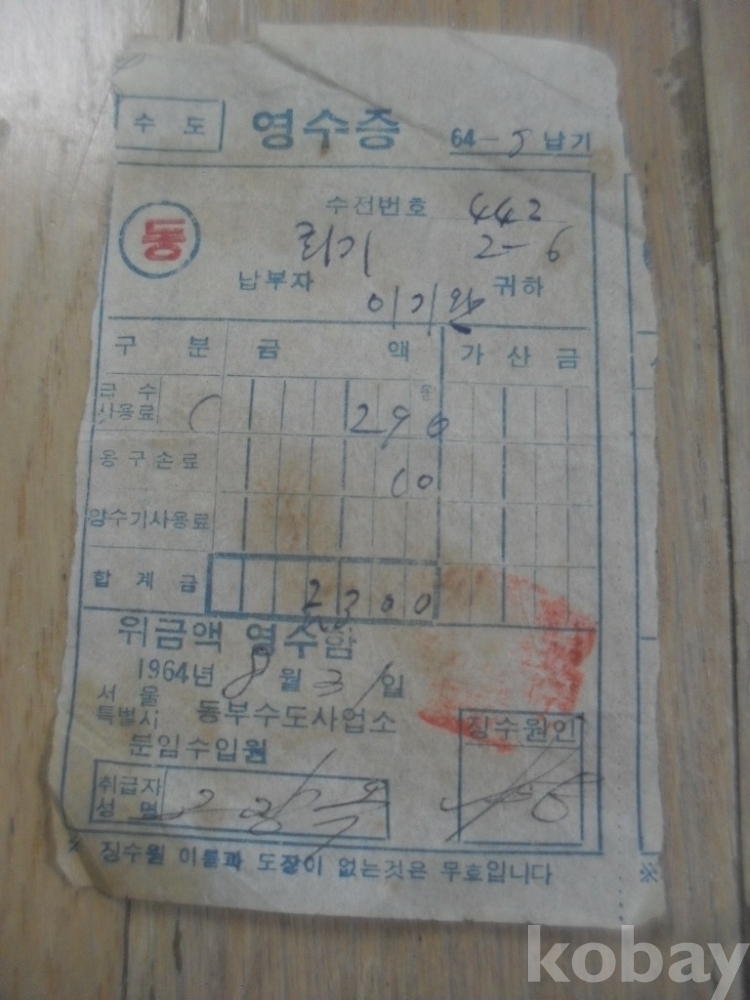 수도 영수증 64-8 납기
동
수전번호 442
2-6
납부자 이기완 귀하
구분 금액 가산금
원
급수
사용료 290
용구손료 10
양수기사용료
합계금 ₩300
위금액 영수함
1964년 8월 31일
서울
특별시 동부수도사업소
분임수입원 징수원인
취급자
성명
※ 징수원 이름과 도장이 없는것은 무효입니다
※
kobay